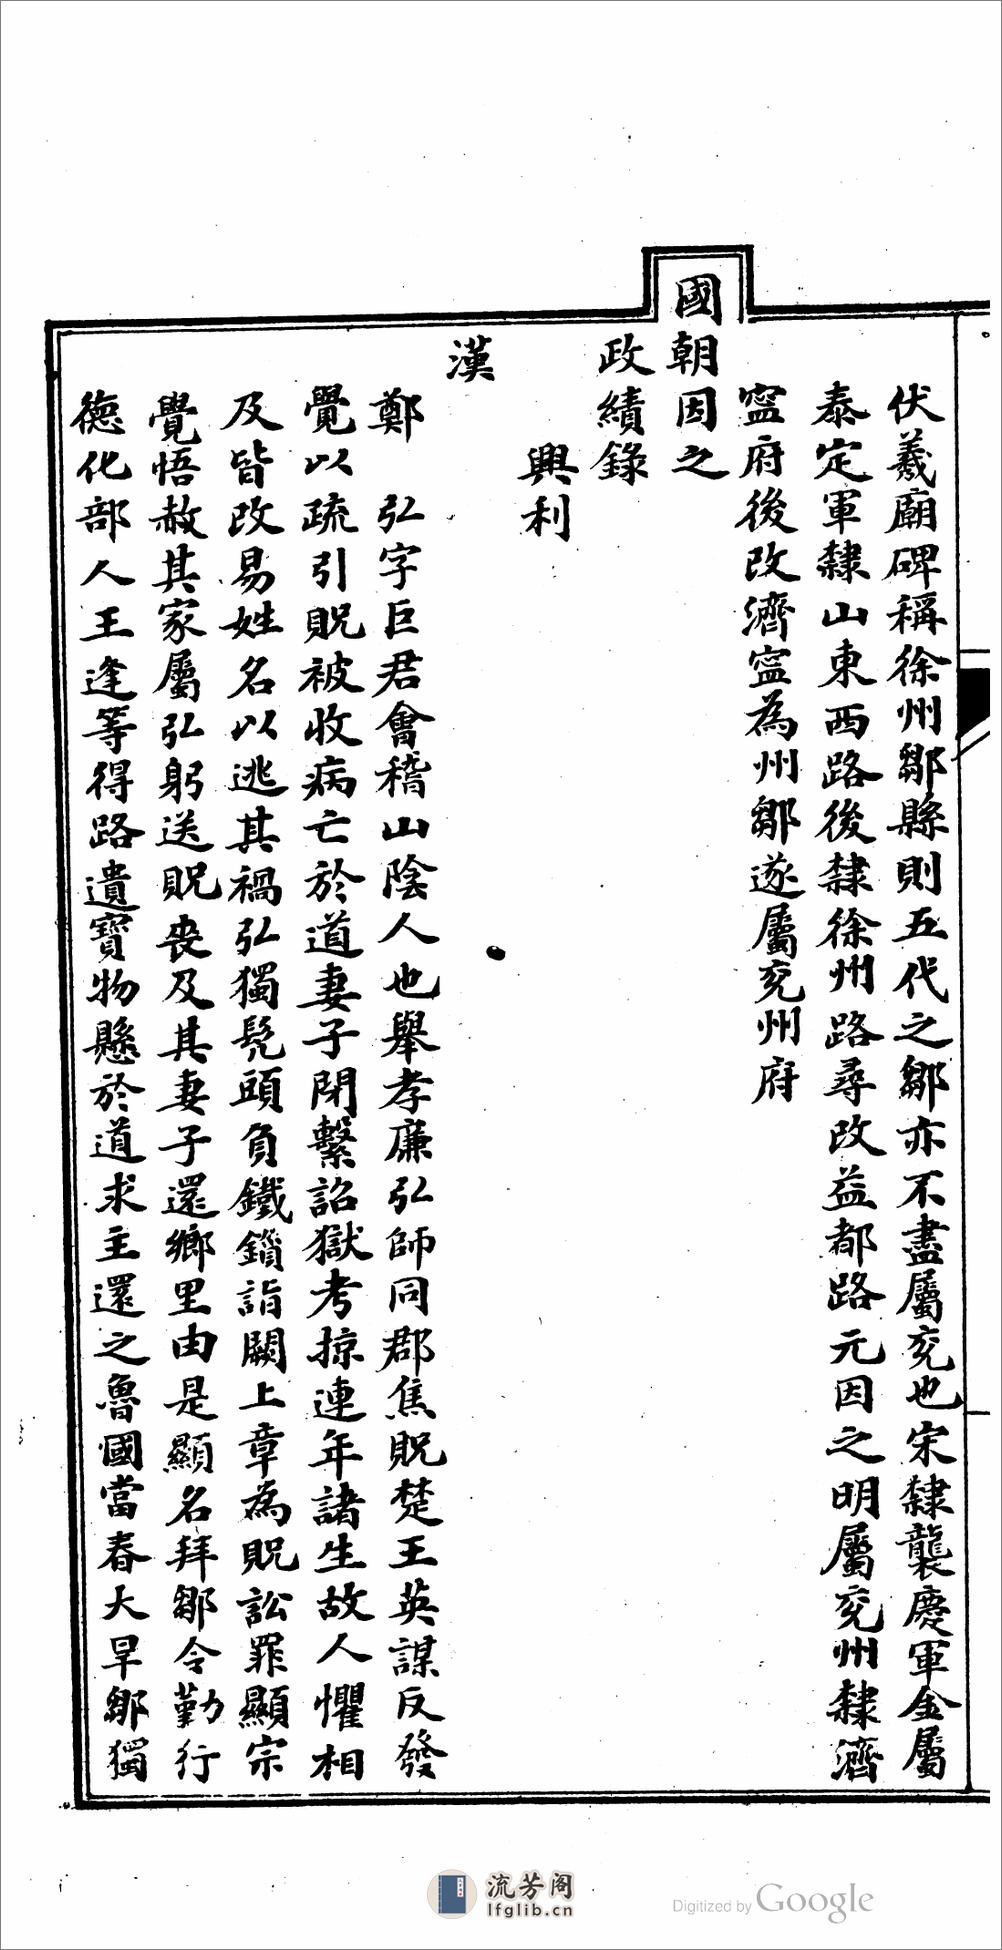 伏羲廟碑稱徐州鄒縣則五代之鄒亦不盡屬兖也宋隸襲慶軍金屬
泰定軍隸山東西路後隸徐州路尋改益都路元因之明屬兖州隸濟
寍府後改濟寍為州鄒遂屬兖州府
國朝因之
政績錄
興利
漢
鄭　弘字巨君會稽山陰人也舉孝廉弘師同郡焦貺楚王英謀反發
覺以疏引貺被收病亡於道妻子閉繫詔獄考掠連年諸生故人懼相
及皆改易姓名以逃其禍弘獨髡頭負鐵鑕詣闕上章為貺訟罪顯宗
覺悟赦其家屬弘躬送貺丧及其妻子還鄉里由是顯名拜鄒令勤行
德化部人王逢等得路遺寶物懸於道求主還之魯國當春大旱鄒獨
流芳阁
lfglib.cn
Digitized by Google